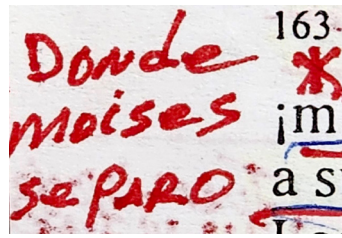 Donde
moises
se PARO
163
¡m
a s